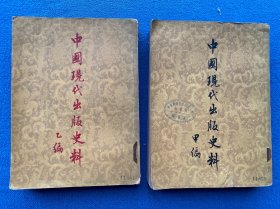 中國現代出版史料
乙編
中國現代出版史料
甲編